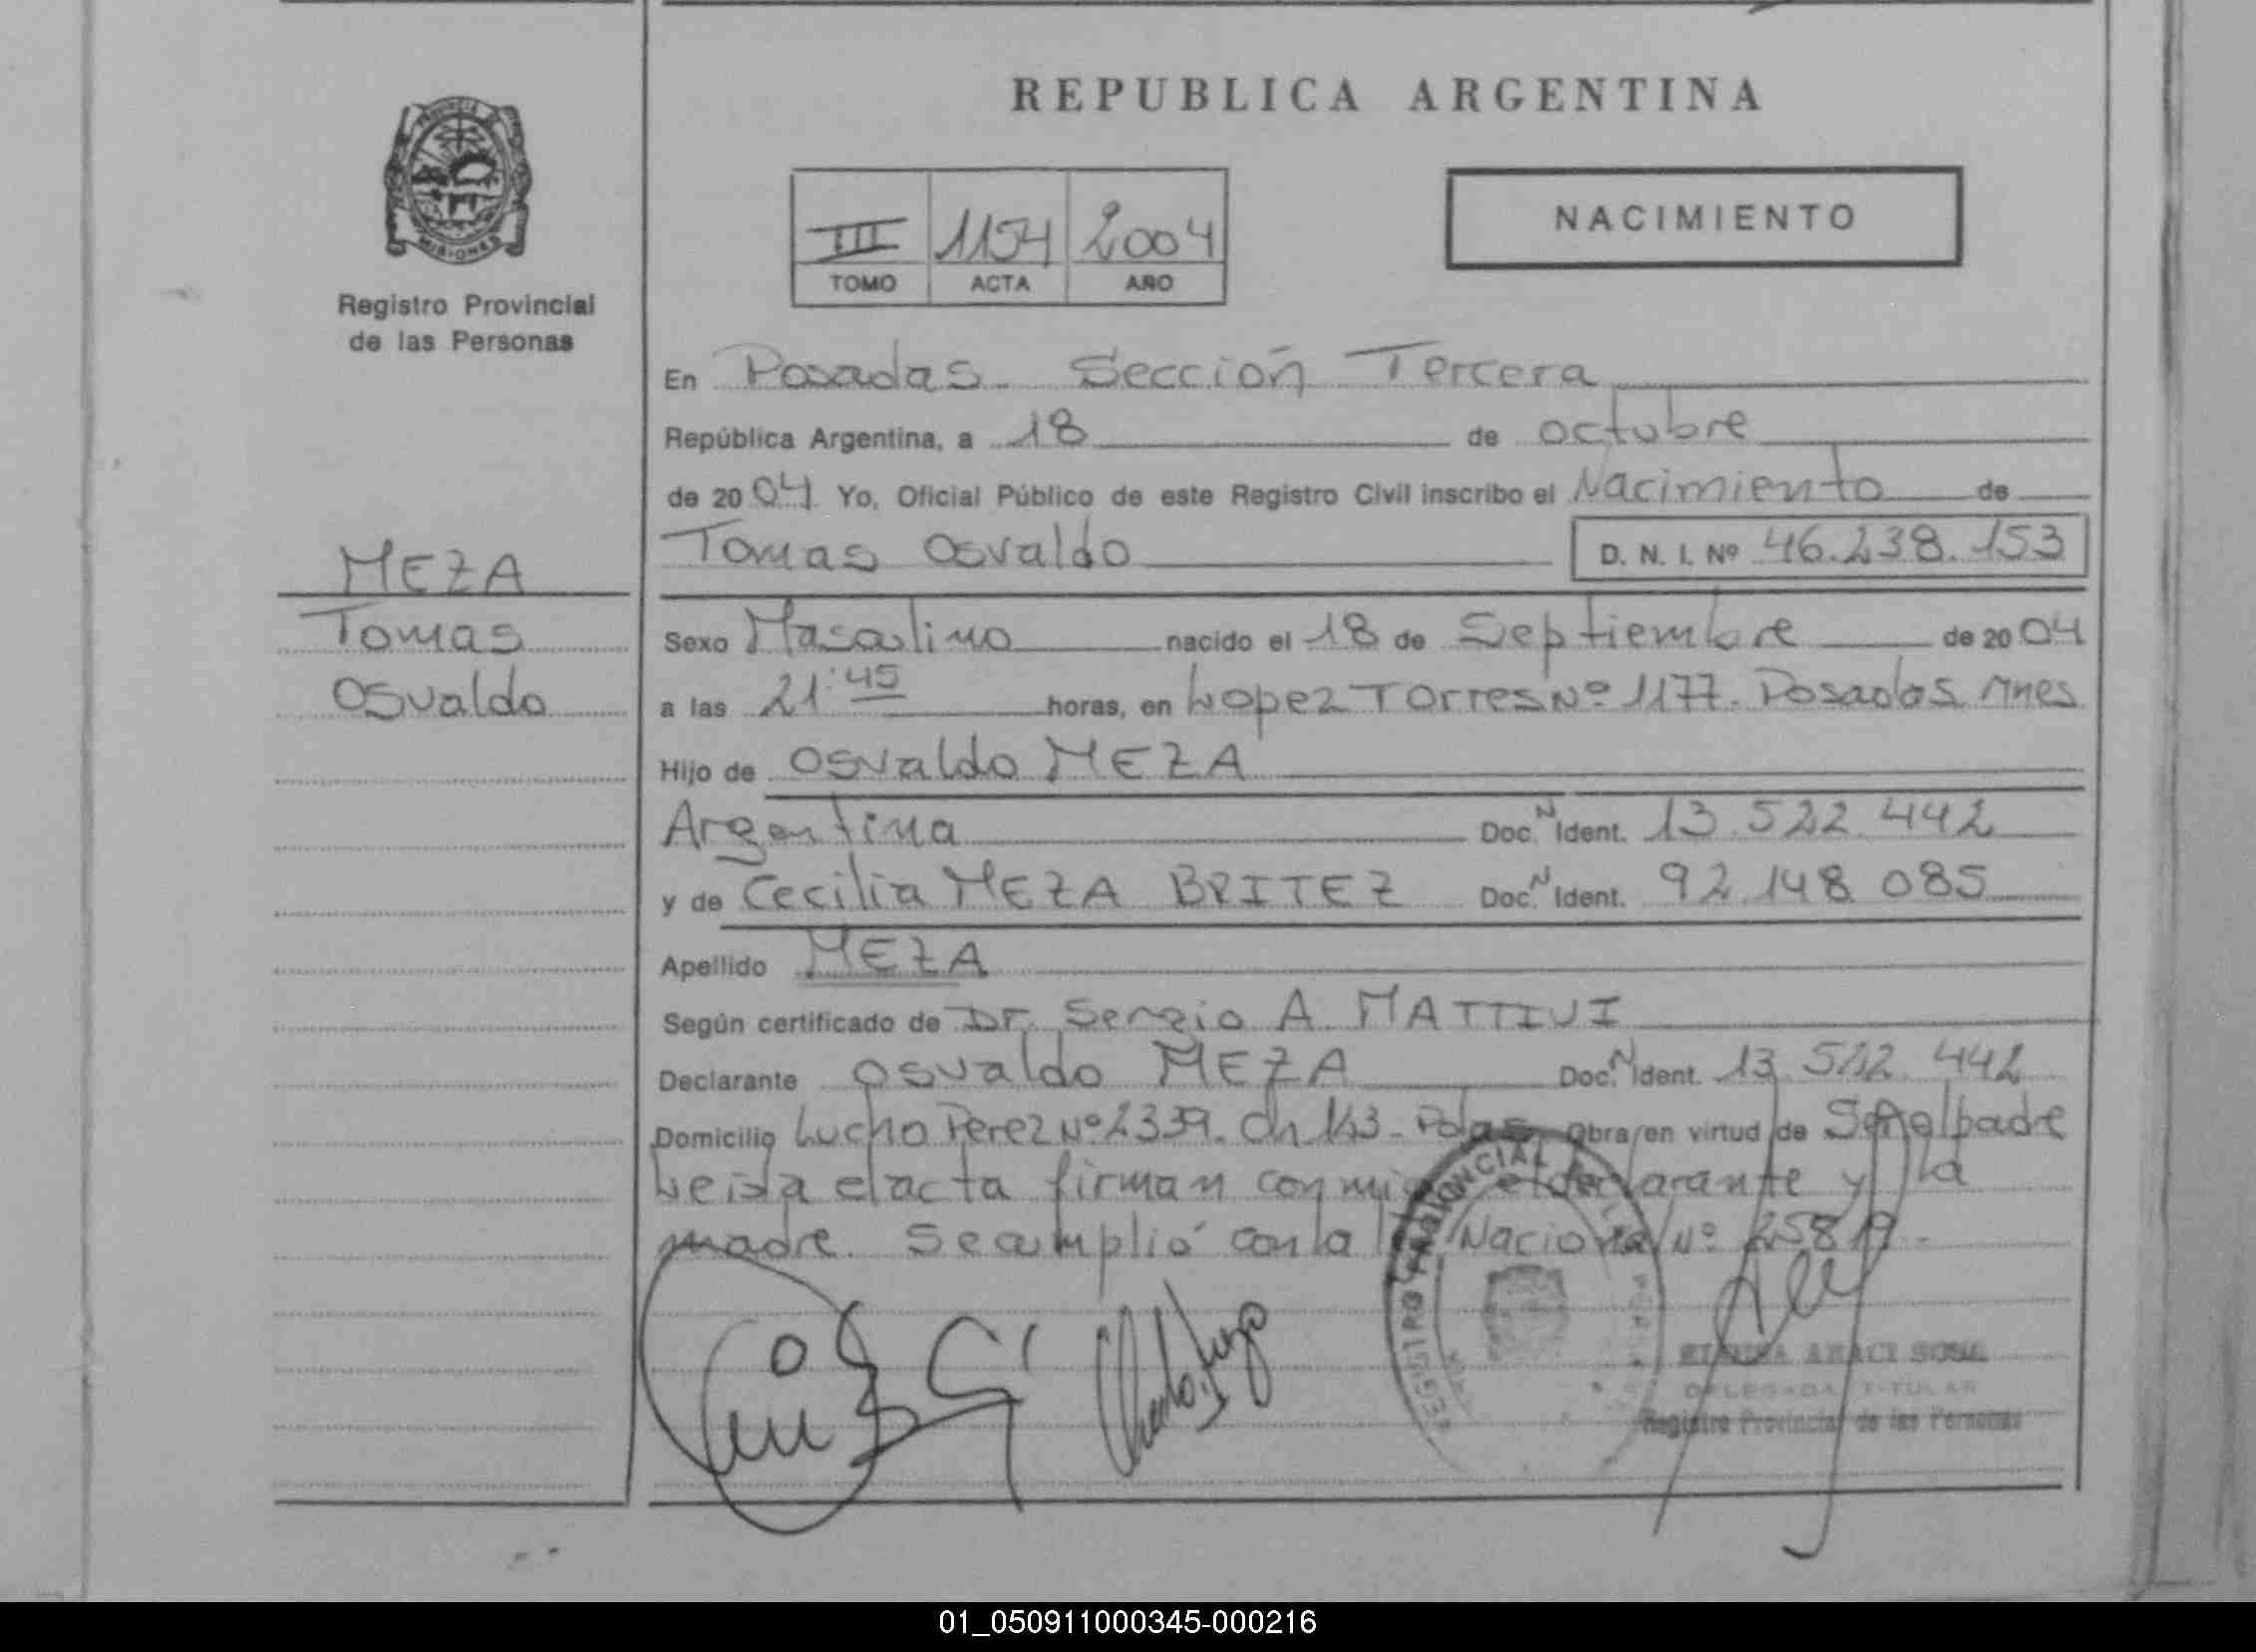 REPUBLICA ARGENTINA
PROVINCIA
MISIONES
Registro Provincial
de las Personas
NACIMIENTO
III 1154 2004
TOMO ACTA AÑO
En Posadas. Sección Tercera
República Argentina, a 18 de octubre
de 2004 Yo, Oficial Público de este Registro Civil inscribo el Nacimiento de
Tomas Osvaldo D. N. I. Nº 46.238.153
MEZA
Tomas
Osvaldo
Sexo Masculino nacido el 18 de Septiembre de 2004
a las 21:45 horas, en Lopez Torres Nº 1177. Posadas Mnes
Hijo de Osvaldo MEZA
Argentina Doc. N Ident. 13.522.442
y de Cecilia MEZA BRITEZ Doc. N Ident. 92.148.085
Apellido MEZA
Según certificado de Dr. Sergio A. MATTIVI
Declarante Osvaldo MEZA Doc. N Ident. 13.522.442
Domicilio Lucho Perez Nº 2339. Ch 143 - Pdas Obra en virtud de Ser el padre
Leida el acta firman conmigo el declarante y la
madre. Se cumplió con la ley Nacional Nº 25819.
REGISTRO PROVINCIAL
DELEGADA TITULAR
Registro Provincial de las Personas
01_050911000345-000216